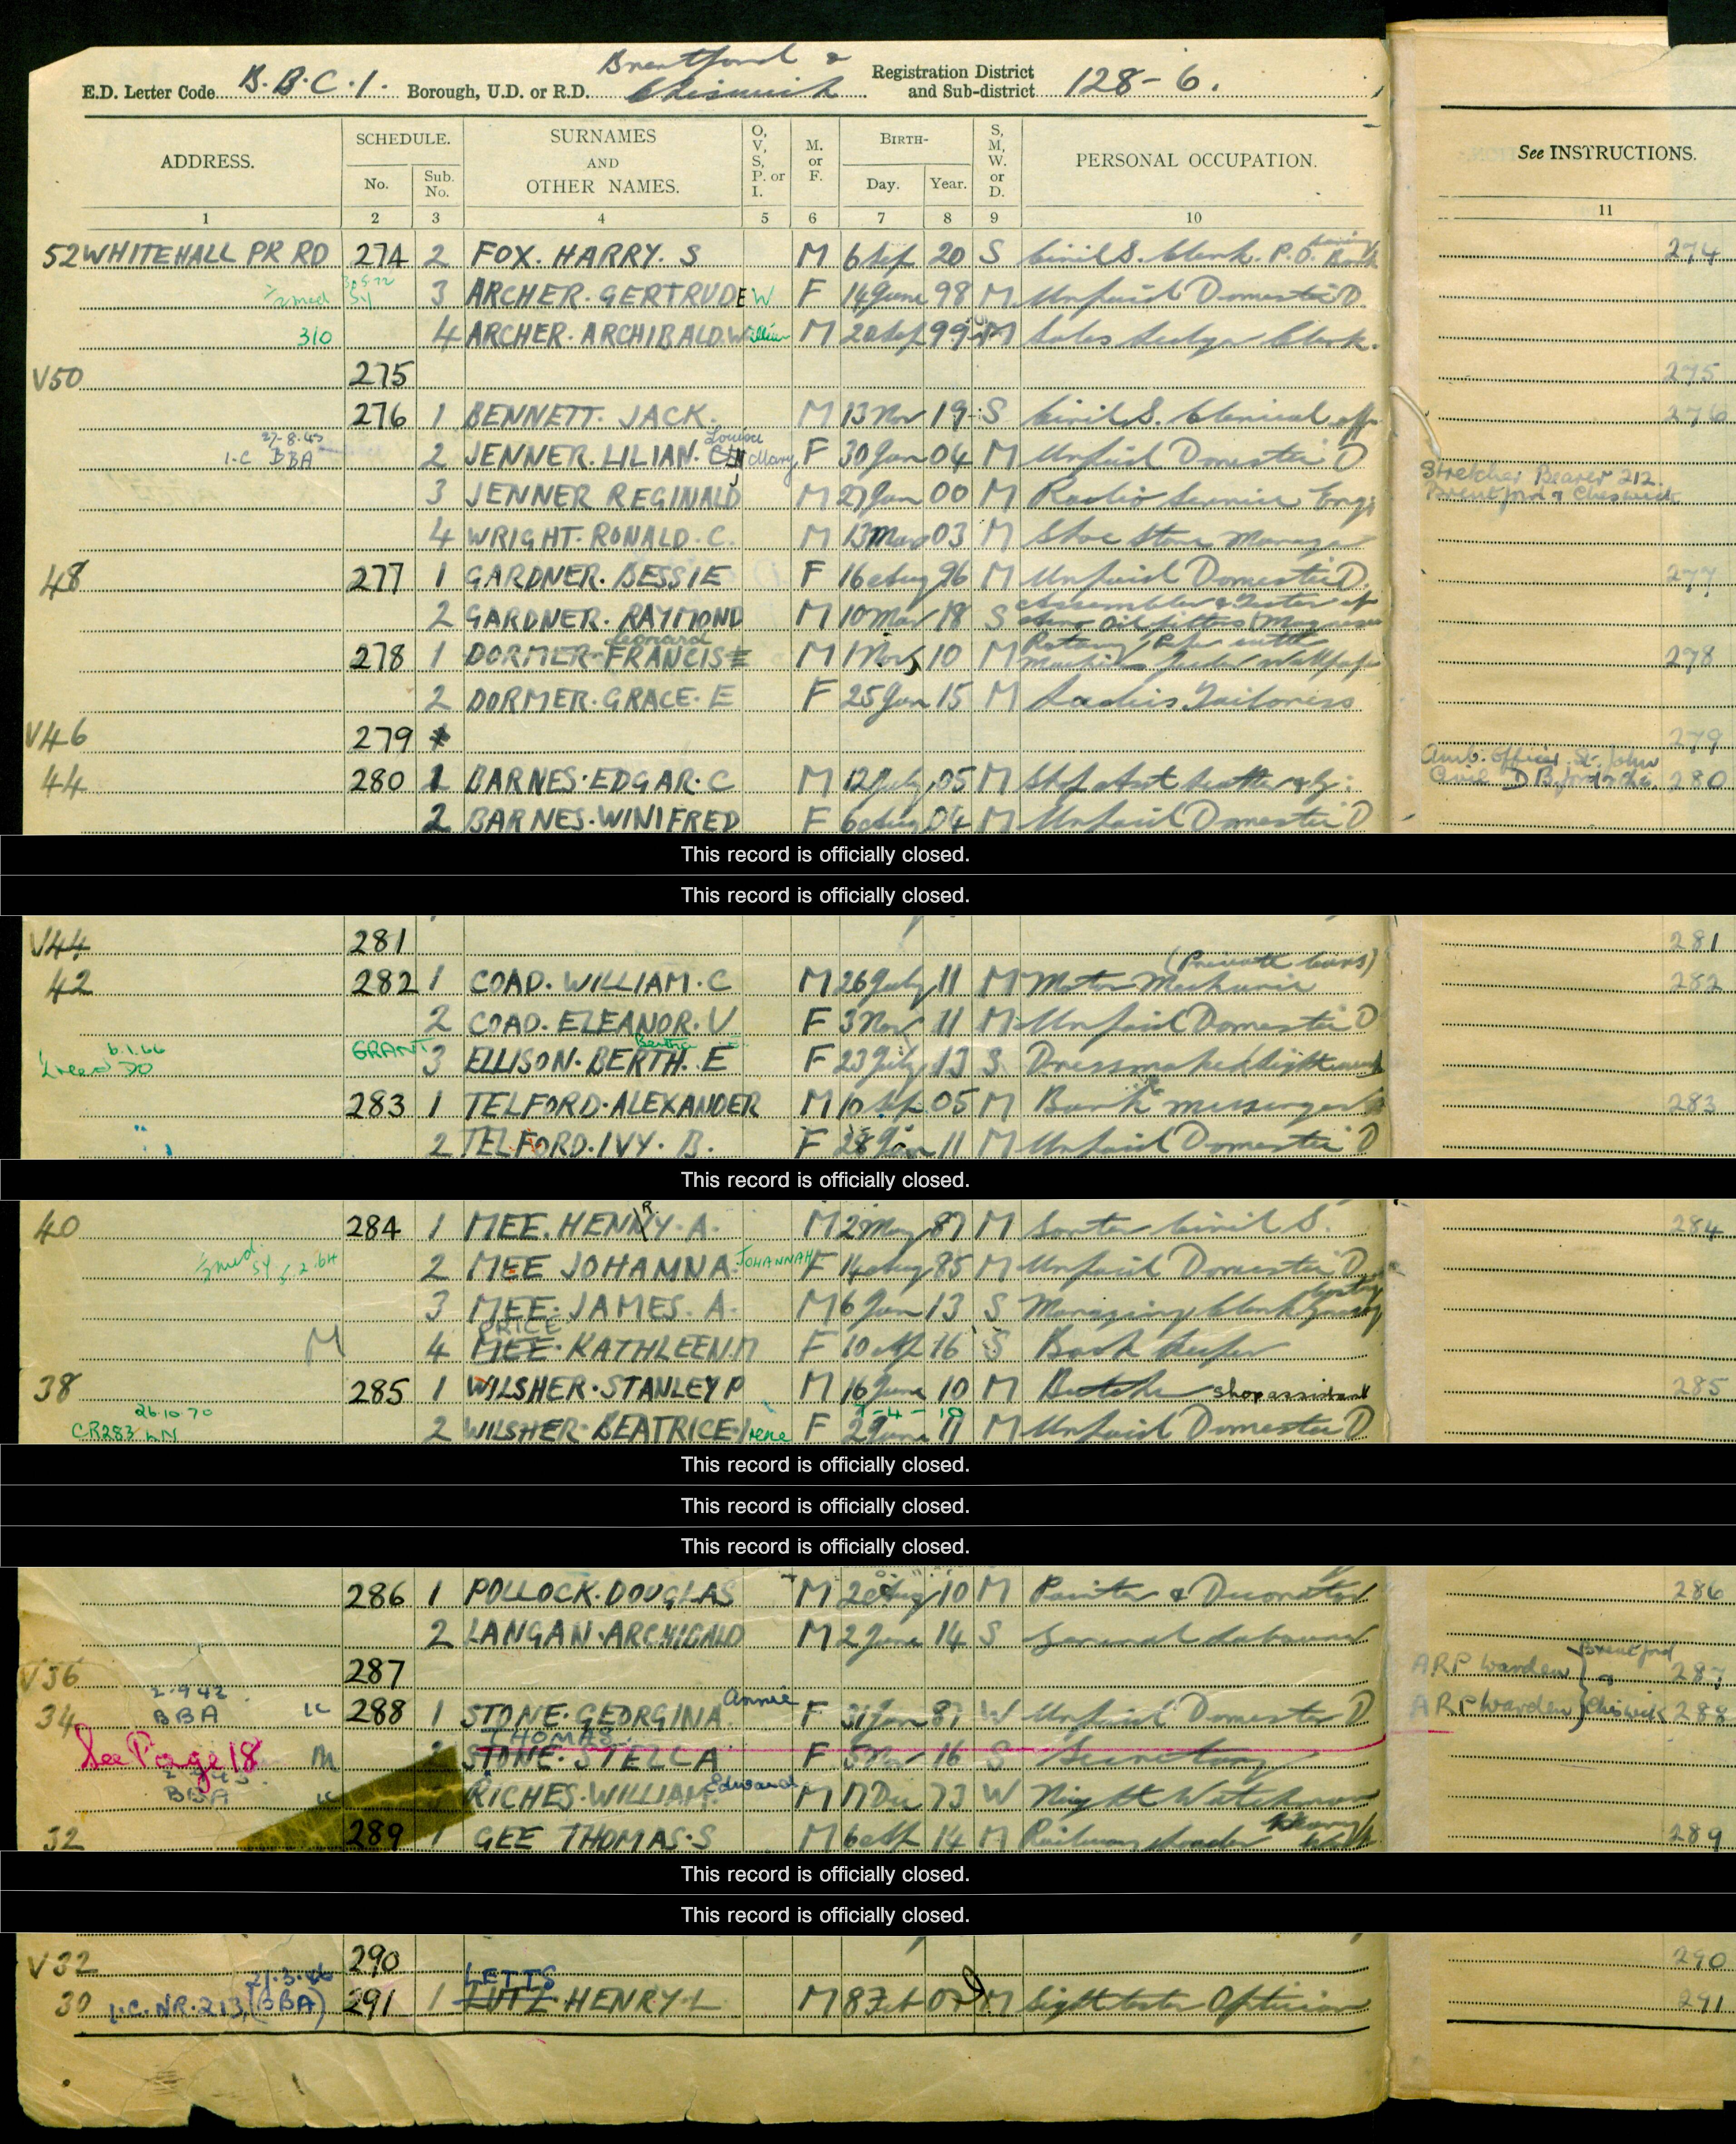 E.D. Letter Code B.B.C.1. Borough, U.D. or R.D. Brentford & Chiswick Registration District and Sub-district 128-6.
ADDRESS. SCHEDULE. No. Sub. No. SURNAMES AND OTHER NAMES. O, V, S, P. or I. M. or F. BIRTH- Day. Year. S, M, W. or D. PERSONAL OCCUPATION. See INSTRUCTIONS.
1 2 3 4 5 6 7 8 9 10 11
52 WHITEHALL PK RD 274 2 FOX. HARRY. S M 6 Sep 20 S Civil S. Clerk. P.O. Saving Bank 274
3 ARCHER. GERTRUDE W F 14 June 98 M Unpaid Domestic D.
310 4 ARCHER. ARCHIBALD. William M 20 Sep 99 M Sales Ledger Clerk.
V50 275 275
276 1 BENNETT. JACK. M 13 Nov 19 S Civil S. Clerical off 276
27-8-45 1-C BBA 2 JENNER. LILIAN. Louisa Mary F 30 Jan 04 M Unpaid Domestic D Stretcher Bearer 212.
3 JENNER REGINALD M 27 Jan 00 M Radio Service Eng: Brentford & Cheswick
4 WRIGHT. RONALD. C. M 13 Mar 03 M Shoe Store Manager
48 277 1 GARDNER. BESSIE F 16 Aug 96 M Unpaid Domestic D. 277
2 GARDNER. RAYMOND M 10 Mar 18 S Assembler & Tester of oil filters
278 1 DORMER. FRANCIS Leonard M 1 Nov 10 M Rotary 278
2 DORMER. GRACE. E F 25 Jan 15 M Ladies Tailoress
V46 279 279
44 280 1 BARNES. EDGAR. C M 12 July 05 M Shop Asst Amb. Officer St. John 280
2 BARNES. WINIFRED F 6 Aug 04 M Unpaid Domestic D
This record is officially closed.
This record is officially closed.
V44 281 281
42 282 1 COAD. WILLIAM. C M 26 July 11 M Motor Mechanic (Private Cars) 282
2 COAD. ELEANOR. V F 3 Nov 11 M Unpaid Domestic D
6.1.66 DO GRANT 3 ELLISON. BERTH. E Bertha F 23 July 13 S Dressmaker
283 1 TELFORD. ALEXANDER M 10 Sep 05 M Bank messenger 283
2 TELFORD. IVY. B. F 28 Jan 11 M Unpaid Domestic D
This record is officially closed.
40 284 1 MEE. HENRY. A. M 2 May 87 M Sorter Civil S. 284
5.2.64 2 MEE JOHAMNA. JOHANNAH F 14 Aug 85 M Unpaid Domestic D
3 MEE. JAMES. A. M 6 Jan 13 S Managing Clerk
M 4 MEE. PRICE KATHLEEN. M F 10 16 S Book Keeper
38 285 1 WILSHER. STANLEY P M 16 June 10 M Butcher shop assistant 285
26.10.70 CR283 LN 2 WILSHER. BEATRICE. Irene F 2 June 11 M Unpaid Domestic D
This record is officially closed.
This record is officially closed.
This record is officially closed.
286 1 POLLOCK. DOUGLAS M 2 Aug 10 M Painter & Decorator 286
2 LANGAN. ARCHIBALD M 2 June 14 S General Labourer
V36 287 ARP Warden Brentford & 287
34 2.9.42 BBA IC 288 1 STONE. GEORGINA. Annie F 31 Jan 87 W Unpaid Domestic D ARP Warden Chiswick 288
See Page 18 M STONE. THOMAS STELLA F 5 Nov 16 S Secretary
BBA IC RICHES. WILLIAM. Edward M 17 Dec 73 W Night Watchman
32 289 1 GEE THOMAS. S M 6 14 M Railway Loader Heavy Work 289
This record is officially closed.
This record is officially closed.
V32 290 290
30 1.C.NR.213.(BBA) 21.3.46 291 1 LUTZ LETTS HENRY. L M 8 Feb M Sight tester Optician 291